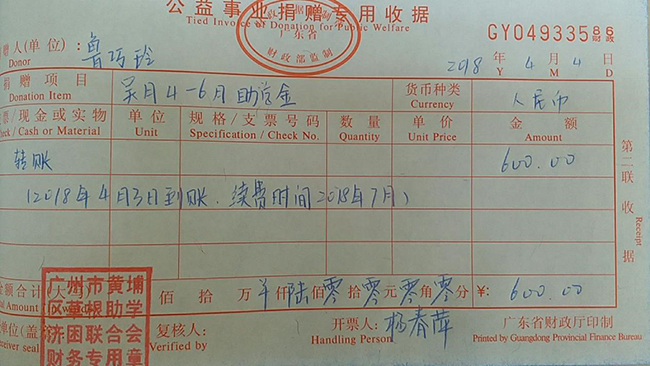 公益事业捐赠专用收据
Tied Invoice of Donation for Public Welfare
广东省
财政部监制
GY04933558
赠人(单位):鲁巧玲
Donor
2018 年 4 月 4 日
Y M D
捐赠项目 吴月4-6月助学金 货币种类 人民币
Donation Item Currency
票/现金或实物 单位 规格/支票号码 数量 单价 金额
eck / Cash or Material Unit Specification / Check No. Quantity Unit Price Amount
转账 600.00
(2018年4月3日到账,续费时间2018年7月)
金额合计(大写) 佰 拾 万 羊 仟 陆 佰 零 拾 零 元 零 角 零 分 ¥: 600.00
广州市黄埔
区草根助学
济困联合会
财务专用章
单位(盖 复核人: 开票人:杨春萍 广东省财政厅印制
ceiver seal Verified by Handling Person Printed by Guangdong Provincial Finance Bureau
第二联 收据
Receipt